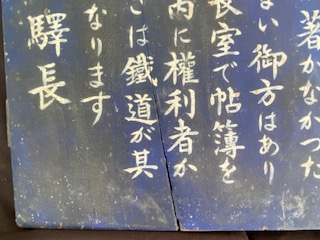 着かなかつた
ない御方はあり
長室で帖簿を
内に權利者か
は鐵道が其
なります
驛長